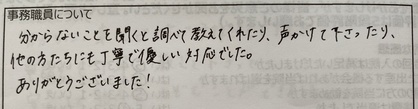 事務職員について
分からないことを聞くと調べて教えてくれたり、声かけて下さったり、
他の方たちにも丁寧で優しい対応でした。
ありがとうございました!